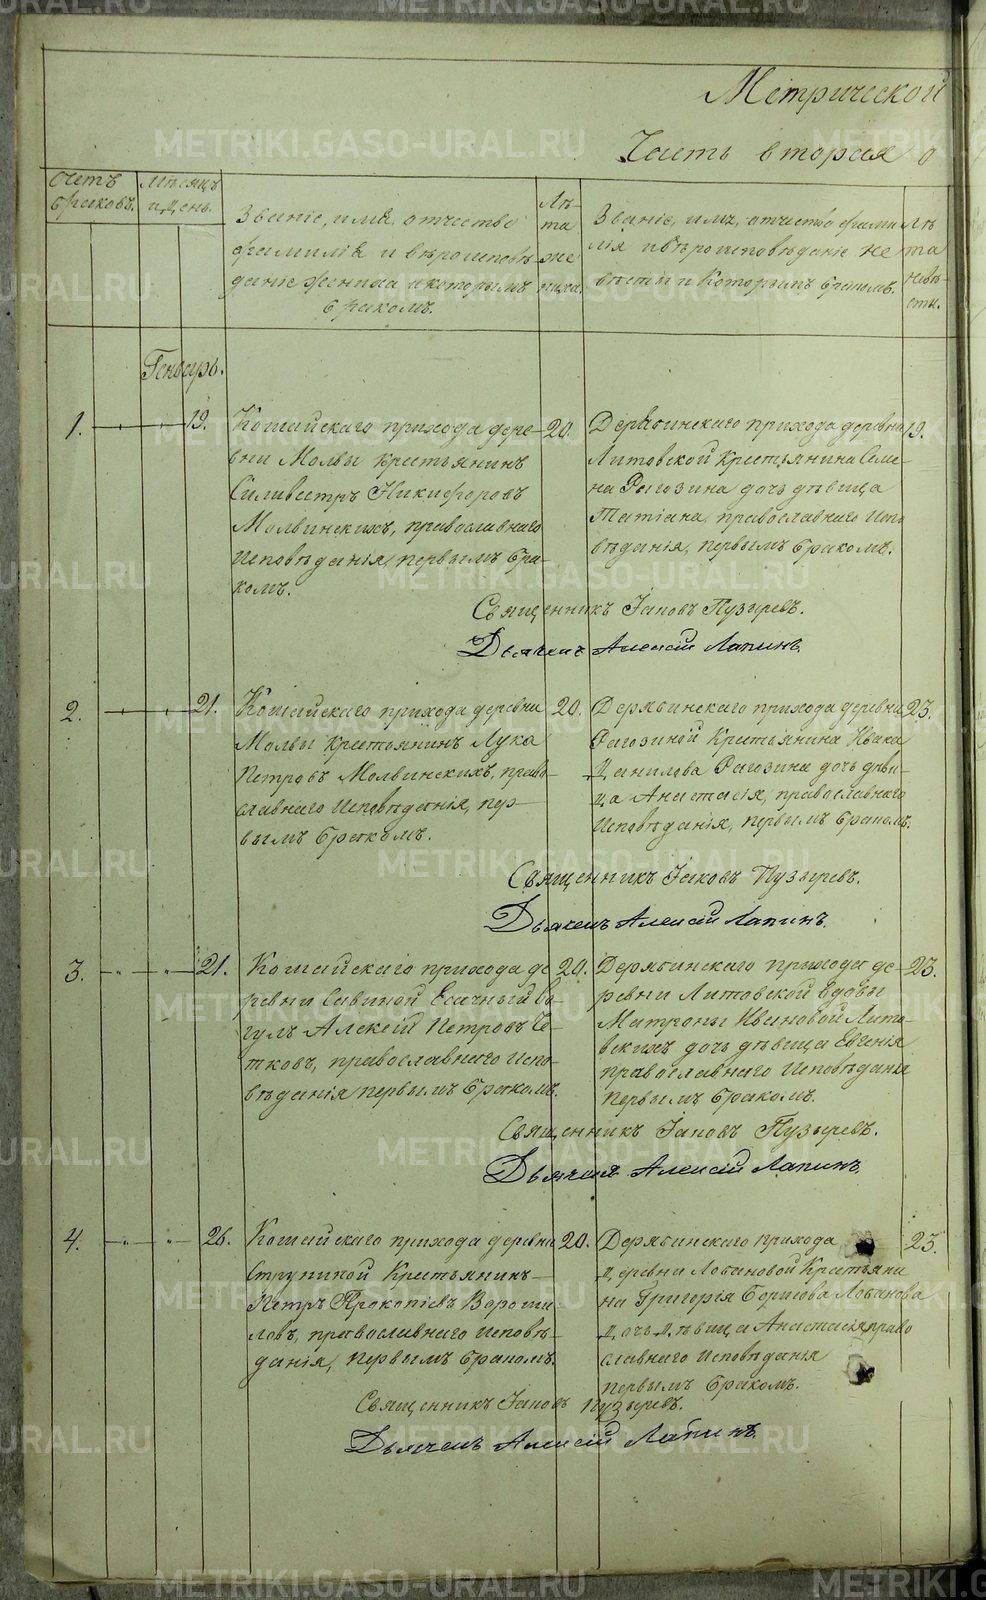 Метрической
Часть вторая о
Счетъ браковъ.
Мѣсяцъ и день.
Званіе, имя, отчество
фамилія и вѣроисповѣ-
даніе жениха и которымъ
бракомъ.
Лѣ-
та
же
ниха.
Званіе, имя, отчество фами
лія и вѣроисповѣданіе не
вѣсты и которымъ бракомъ.
Лѣ
та
невѣ-
сты.
Генварь.
1. 19.
Кошайскаго прихода дере-
вни Молвы крестьянинъ
Силивестръ Никифоровъ
Молвинскихъ, православнаго
Исповѣданія, первымъ бра-
комъ.
20.
Дерябинскаго прихода деревни
Литовской Крестьянина Семе-
на Рагозина дочь дѣвица
Татіана, православнаго Испо
вѣданія, первымъ бракомъ.
19.
Священникъ Іаковъ Пузыревъ.
Дьячекъ Алексій Лапинъ.
2. 21.
Кошайскаго прихода деревни
Молвы Крестьянинъ Лука
Петровъ Молвинскихъ, право
славнаго Исповѣданія, пер-
вымъ бракомъ.
20.
Дерябинскаго прихода деревни
Рагозиной Крестьянина Ивана
Данилова Рагозина дочь дѣви-
ца Анастасія, православнаго
Исповѣданія, первымъ бракомъ.
23.
Священникъ Іаковъ Пузыревъ.
Дьячекъ Алексій Лапинъ.
3. 21.
Кошайскаго прихода де
ревни Савиной Ясачный Во
гулъ Алексій Петровъ Че-
тковъ, православнаго Испо-
вѣданія первымъ бракомъ.
20.
Дерябинскаго прихода де-
ревни Литовской вдовы
Матроны Ивановой Лито-
вскихъ дочь дѣвица Евгенія
православнаго Исповѣдані
первымъ бракомъ.
23.
Священникъ Іаковъ Пузыревъ.
Дьячекъ Алексій Лапинъ.
4. 26.
Кошайскаго прихода деревни
Ступиной Крестьянинъ
Петръ Прокопіевъ Вороши
ловъ, православнаго Исповѣ-
данія, первымъ бракомъ.
20.
Дерябинскаго прихода
деревни Лобановой Крестьяни
на Григорія Борисова Лобанова
дочь дѣвица Анастасія право
славнаго Исповѣданія
первымъ бракомъ.
23.
Священникъ Іаковъ Пузыревъ.
Дьячекъ Алексій Лапинъ.
METRIKI.GASO-URAL.RU